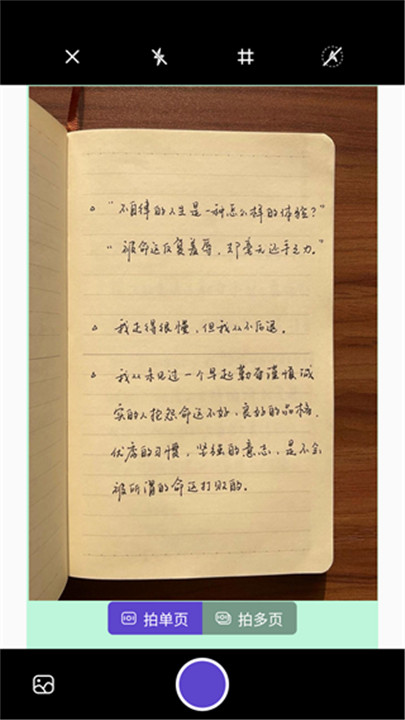 。“不自律的人生是一种怎么样的体验？”
“被命运反复羞辱，却毫无还手之力。”
。我走得很慢，但我从不后退。
。我从未见过一个早起勤奋谨慎诚
实的人抱怨命运不好、良好的品格，
优秀的习惯，坚强的意志，是不会
被所谓的命运打败的。
拍单页 拍多页